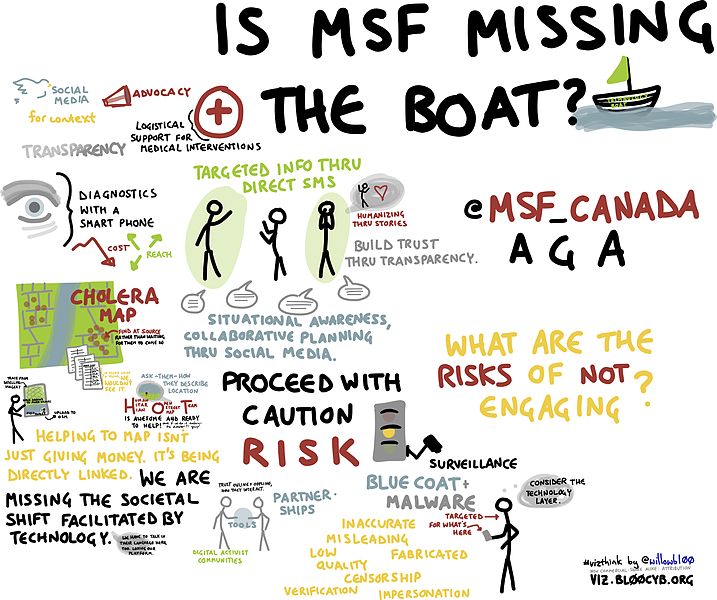 IS MSF MISSING
THE BOAT?
TECHNOLOGY
BOAT
SOCIAL
MEDIA
for context
ADVOCACY
LOGISTICAL
SUPPORT FOR
MEDICAL INTERVENTIONS
TRANSPARENCY
DIAGNOSTICS
WITH A
SMART PHONE
COST
REACH
TARGETED INFO THRU
DIRECT SMS
HUMANIZING
THRU STORIES
BUILD TRUST
THRU TRANSPARENCY.
SITUATIONAL AWARENESS,
COLLABORATIVE PLANNING
THRU SOCIAL MEDIA.
@MSF_CANADA
AGA
CHOLERA
MAP
FIND AT SOURCE
RATHER THAN WAITING
FOR THEM TO COME IN
WOULDN'T
SEE IT.
TRACE FROM
UPLOAD TO
OSM
ASK-THEM-HOW
THEY DESCRIBE
LOCATION
HUMANITARIAN OPEN STREET MAP TEAM
IS AWESOME AND READY
TO HELP!
HELPING TO MAP ISN'T
JUST GIVING MONEY. IT'S BEING
DIRECTLY LINKED.
WE ARE
MISSING THE SOCIETAL
SHIFT FACILITATED BY
TECHNOLOGY.
WE HAVE TO TALK IN
THEIR LANGUAGE HERE
PLATFORM.
PROCEED WITH
CAUTION
RISK
SURVEILLANCE
WHAT ARE THE
RISKS OF NOT
ENGAGING?
TRUST ONLINE+OFFLINE,
HOW THEY INTERACT.
TOOLS
DIGITAL ACTIVIST
COMMUNITIES
PARTNER-
SHIPS
BLUE COAT+
MALWARE
TARGETED
FOR WHAT'S
HERE
CONSIDER THE
TECHNOLOGY
LAYER.
INACCURATE
MISLEADING
LOW
QUALITY
FABRICATED
CENSORSHIP
VERIFICATION
IMPERSONATION
#vizthink by @willowbl00
NON COMMERCIAL · SHARE ALIKE · ATTRIBUTION
VIZ.BL00CYB.ORG